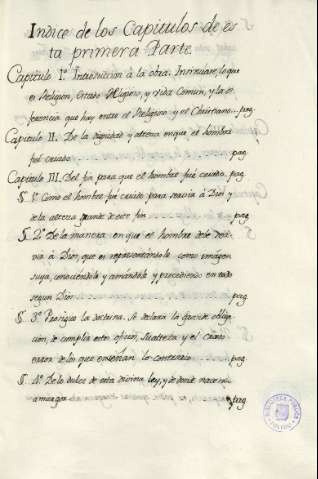 Indice de los Capitulos de es
ta primera Parte.
Capitulo 1º. Introduccion à la obra. Insinuase, lo que
es Religion, Estado Religioso, y vida Comun, y la di
ferencia que hay entre el Religioso y el Christiano... pag.
Capitulo II. De la dignidad y alteza en que el hombre
fué criado pag.
Capitulo III. Del fin para que el hombre fué criado. pag.
§. 1º. Como el hombre fué criado para servir à Dios y
de la alteza grande de este fin pag.
§. 2º. De la manera en que el hombre debe ser
vir à Dios, que es representandole como imagen
suya, conociendole y amandole y procediendo en todo
segun Dios pag.
§. 3º. Prosigue la doctrina. Se declara la grande obliga
cion, de cumplir este oficio, su alteza y el
error de los que enseñan lo contrario. pag.
§. 4º. De lo dulce de esta divina ley, y de donde nace su
amargor pag.
BIBLIOTECA PUBLICA
TOLEDO